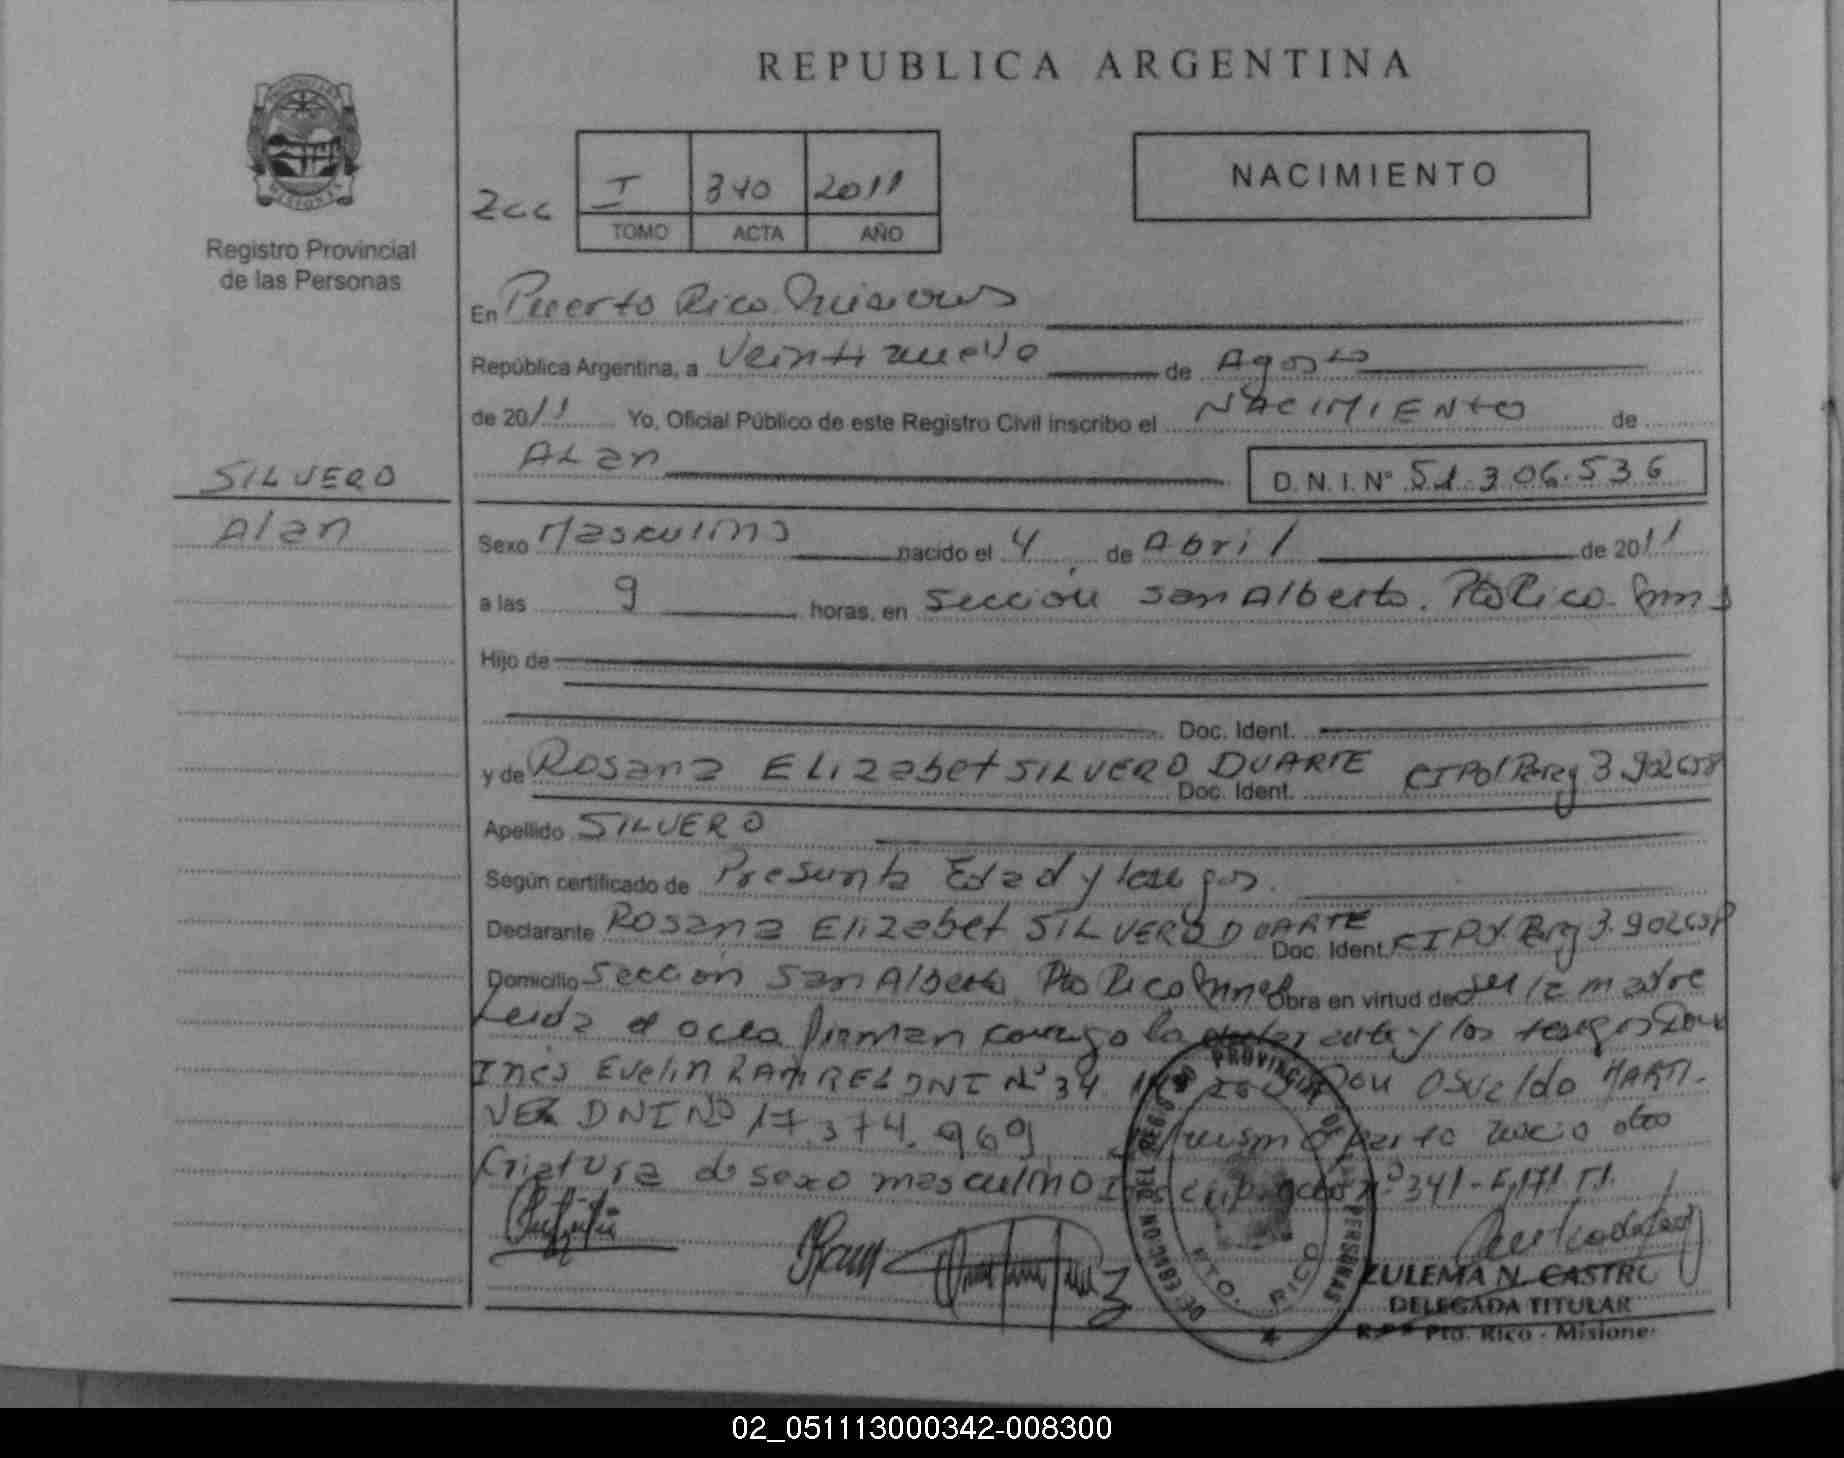 REPUBLICA ARGENTINA
MISIONES
Registro Provincial
de las Personas
NACIMIENTO
I 340 2011
TOMO ACTA AÑO
En Puerto Rico Misiones
República Argentina, a Veintinueve de Agosto
de 2011 Yo, Oficial Público de este Registro Civil inscribo el NACIMIENTO de
ALan
D.N.I. Nº 51.306.536
SILVERO
Alan
Sexo Masculino nacido el 4 de Abril de 2011
a las 9 horas, en Sección San Alberto. Pto Rico. Mnes
Hijo de
Doc. Ident.
y de Rosana ELizabet SILVERO DUARTE
Doc. Ident. CI Pol Parag 3.902658
Apellido SILVERO
Según certificado de Presunta Edad y testigos.
Declarante Rosana Elizabet SILVERO DUARTE
Doc. Ident. CI Pol. Parg 3.902658
Domicilio Sección San Alberto Pto Rico Mnes Obra en virtud de ser la madre
Leida el acta firman conmigo la declarante y los testigos
Inés Evelin RAMIREZ DNI Nº 34. Osvaldo MARTI-
NEZ DNI Nº 17.374.969 mismo parto nacio otro
Criatura de sexo masculino acta nº 341-F.171 T.I.
DELEGACION DEL REGISTRO PROVINCIAL DE LAS PERSONAS
PTO. RICO
ZULEMA N. CASTRO
DELEGADA TITULAR
R.P.P Pto. Rico - Misiones
02_051113000342-008300